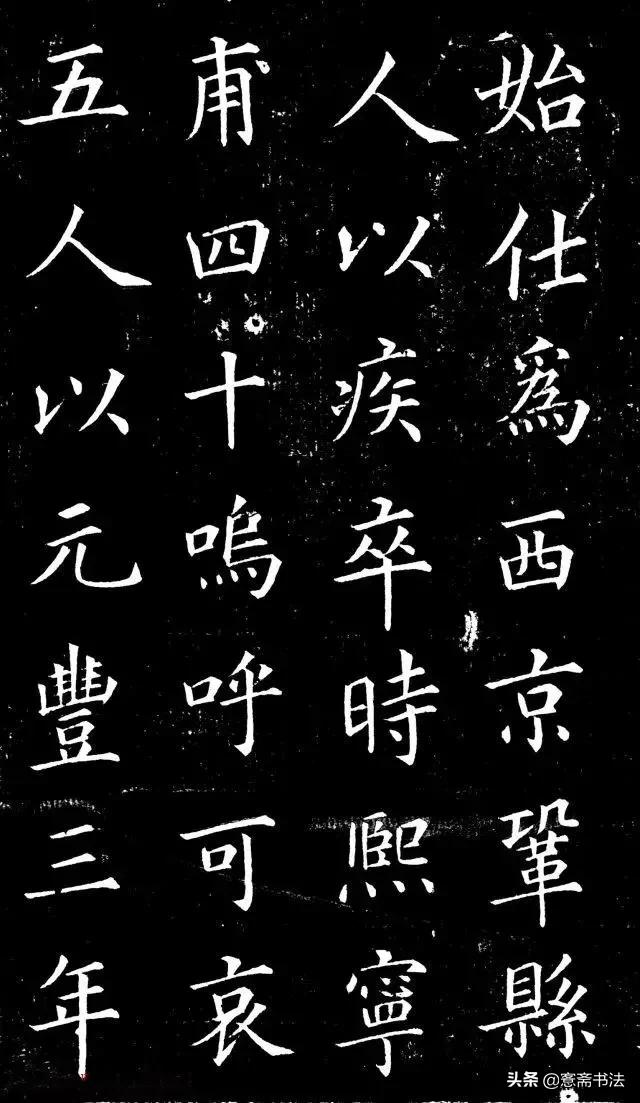 始仕爲西京鞏縣
人以疾卒時熙寧
甫四十嗚呼可哀
五人以元豐三年
头条 @窓斋书法